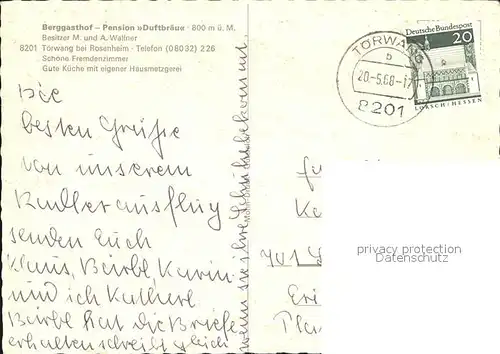 Berggasthof – Pension »Duftbräu« · 800 m ü. M.
Besitzer M. und A. Wallner
8201 Törwang bei Rosenheim · Telefon (08032) 226
Schöne Fremdenzimmer
Gute Küche mit eigener Hausmetzgerei
TÖRWANG
b
20.-5.68-17
8201
Deutsche Bundespost
20
LORSCH/HESSEN
Die
besten Grüße
von unserem
Radlerausflug
senden Euch
Klaus, Bärbl, Karin
und ich
Bärbl hat die Briefe
erhalten schreibt gleich
wenn sie ihre Schuhe bekommt
privacy protection
Datenschutz